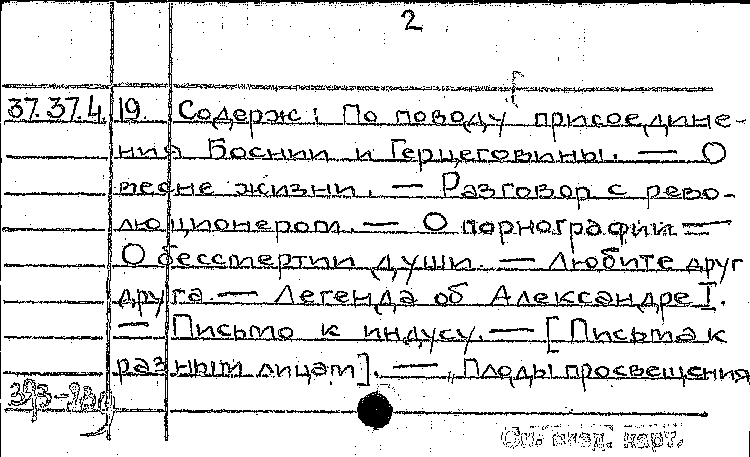 2
37.37.4. 19. Содерж: По поводу присоедине-
ния Боснии и Герцеговины. — О
весне жизни. — Разговор с рево-
люционером. — О порнографии —
О бессмертии души. — Любите друг
друга. — Легенда об Александре I.
— Письмо к индусу. — [Письма к
разным лицам]. — „Плоды просвещения
См. след. карт.